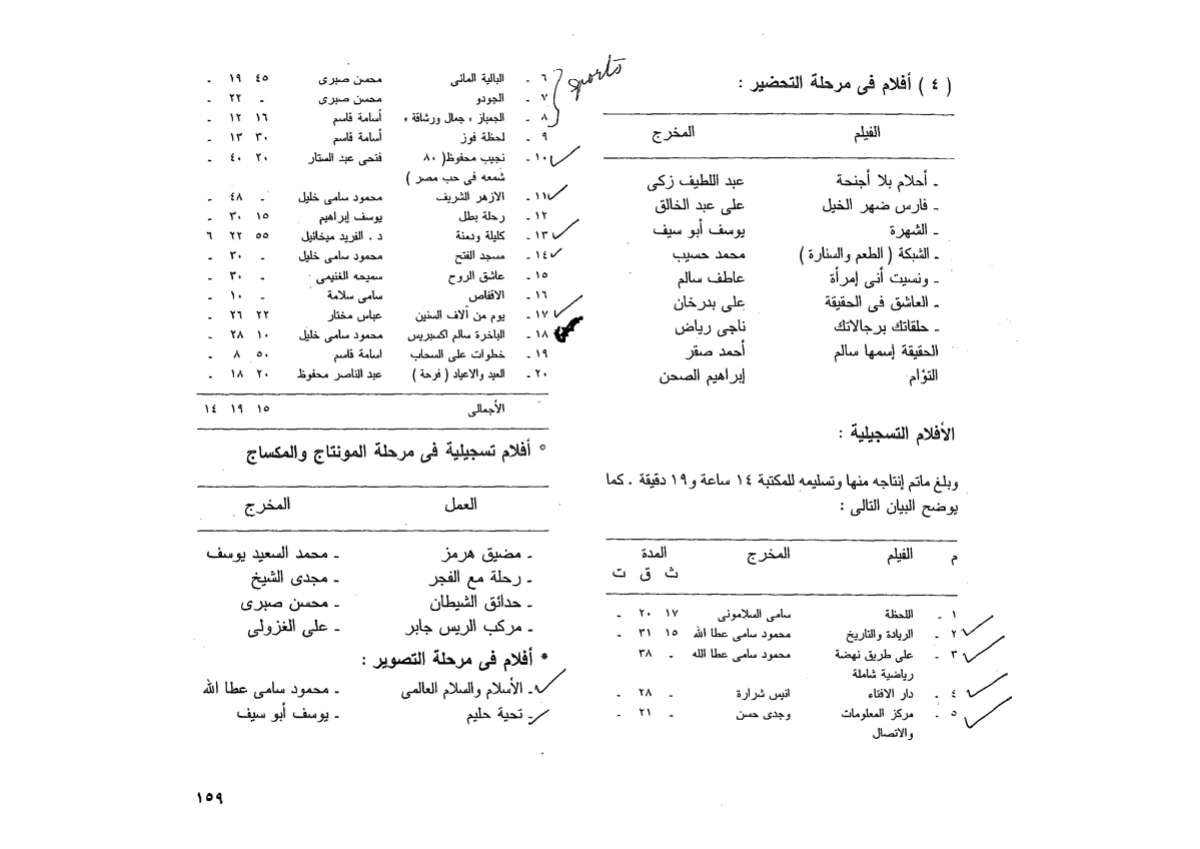 ( ٤ ) أفلام فى مرحلة التحضير :
الفيلم المخرج
ـ أحلام بلا أجنحة عبد اللطيف زكى
ـ فارس ضهر الخيل على عبد الخالق
ـ الشهرة يوسف أبو سيف
ـ الشبكة ( الطعم والسنارة ) محمد حسيب
ـ ونسيت أنى إمرأة عاطف سالم
ـ العاشق فى الحقيقة على بدرخان
ـ حلقاتك برجالاتك ناجى رياض
الحقيقة إسمها سالم أحمد صقر
التؤام إبراهيم الصحن
الأفلام التسجيلية :
وبلغ ماتم إنتاجه منها وتسليمه للمكتبة ١٤ ساعة و١٩ دقيقة . كما
يوضح البيان التالى :
م الفيلم المخرج المدة
ث ق ت
١ ـ اللحظة سامى السلامونى ١٧ ٢٠ ـ
٢ ـ الريادة والتاريخ محمود سامى عطا الله ١٥ ٣١ ـ
٣ ـ على طريق نهضة محمود سامى عطا الله ـ ٣٨
رياضية شاملة
٤ ـ دار الافتاء انيس شرارة ـ ٢٨ ـ
٥ ـ مركز المعلومات وجدى حسن ـ ٢١ ـ
والاتصال
sports
٦ ـ البالية المائى محسن صبرى ٤٥ ١٩ ـ
٧ ـ الجودو محسن صبرى ـ ٢٢ ـ
٨ ـ الجمباز ، جمال ورشاقة ، أسامة قاسم ١٦ ١٢ ـ
٩ ـ لحظة فوز أسامة قاسم ٣٠ ١٣ ـ
١٠ ـ نجيب محفوظ( ٨٠ فتحى عبد الستار ٢٠ ٤٠ ـ
شمعه فى حب مصر )
١١ ـ الازهر الشريف محمود سامى خليل ـ ٤٨ ـ
١٢ ـ رحلة بطل يوسف إبراهيم ١٥ ٣٠ ـ
١٣ ـ كليلة ودمنة د . الفريد ميخائيل ٥٥ ٢٢ ٦
١٤ ـ مسجد الفتح محمود سامى خليل ـ ٣٠ ـ
١٥ ـ عاشق الروح سميحه الغنيمى ـ ٣٠ ـ
١٦ ـ الاقفاص سامى سلامة ـ ١٠ ـ
١٧ ـ يوم من آلاف السنين عباس مختار ٢٢ ٢٦ ـ
١٨ ـ الباخرة سالم اكسبريس محمود سامى خليل ١٠ ٢٨ ـ
١٩ ـ خطوات على السحاب اسامة قاسم ٥٠ ٨ ـ
٢٠ ـ العيد والاعياد ( فرحة ) عبد الناصر محفوظ ٢٠ ١٨ ـ
الأجمالى ١٥ ١٩ ١٤
* أفلام تسجيلية فى مرحلة المونتاج والمكساج
العمل المخرج
ـ مضيق هرمز ـ محمد السعيد يوسف
ـ رحلة مع الفجر ـ مجدى الشيخ
ـ حدائق الشيطان ـ محسن صبرى
ـ مركب الريس جابر ـ على الغزولى
* أفلام فى مرحلة التصوير :
ـ الأسلام والسلام العالمى ـ محمود سامى عطا الله
ـ تحية حليم ـ يوسف أبو سيف
١٥٩